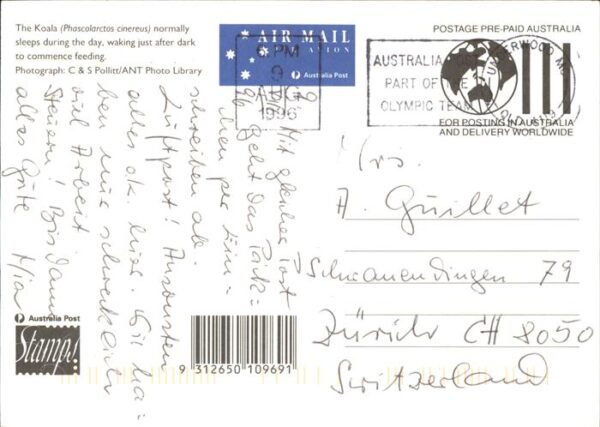 The Koala (Phascolarctos cinereus) normally
sleeps during the day, waking just after dark
to commence feeding.
Photograph: C & S Pollitt/ANT Photo Library
AIR MAIL
PAR AVION
Australia Post
6 PM
1996
AUSTRALIA POST
PART OF THE
OLYMPIC TEAM
UNDERWOOD
POSTAGE PRE-PAID AUSTRALIA
FOR POSTING IN AUSTRALIA
AND DELIVERY WORLDWIDE
Mit gleicher Post
geht das Päck-
chen per
schreiben ab.
Luftpost! Ansonsten
alles ok. hier. Wir ha-
ben nur schrecklich
viel Arbeit
Steuern! Bis dann
alles Gute
A. Guillet
Schwamendingen 79
Zürich CH 8050
Switzerland
Australia Post
Stamps!
9 312650 109691